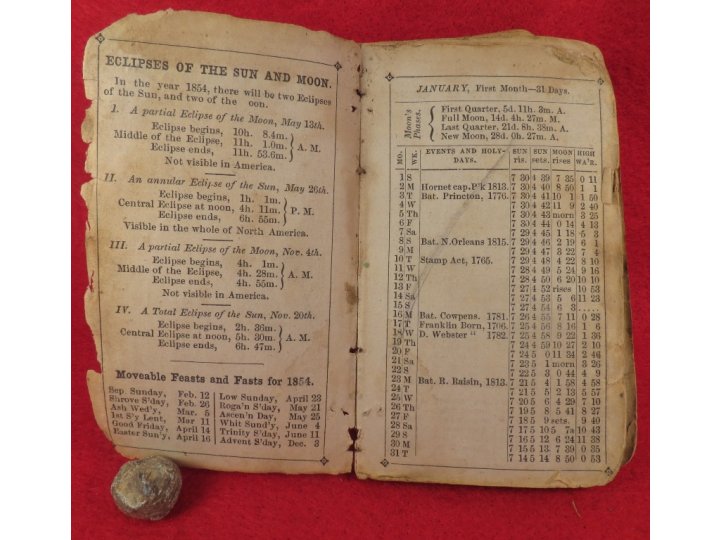 ECLIPSES OF THE SUN AND MOON.
In the year 1854, there will be two Eclipses
of the Sun, and two of the oon.
I. A partial Eclipse of the Moon, May 13th.
Eclipse begins, 10h. 8.4m.
Middle of the Eclipse, 11h. 1.0m. A. M.
Eclipse ends, 11h. 53.6m.
Not visible in America.
II. An annular Eclipse of the Sun, May 26th.
Eclipse begins, 1h. 1m.
Central Eclipse at noon, 4h. 11m. P. M.
Eclipse ends, 6h. 55m.
Visible in the whole of North America.
III. A partial Eclipse of the Moon, Nov. 4th.
Eclipse begins, 4h. 1m.
Middle of the Eclipse, 4h. 28m. A. M.
Eclipse ends, 4h. 55m.
Not visible in America.
IV. A Total Eclipse of the Sun, Nov. 20th.
Eclipse begins, 2h. 36m.
Central Eclipse at noon, 5h. 30m. A. M.
Eclipse ends, 6h. 47m.
Moveable Feasts and Fasts for 1854.
Sep. Sunday, Feb. 12 Low Sunday, April 23
Shrove S'day, Feb. 26 Roga'n S'day, May 21
Ash Wed'y, Mar. 5 Ascen'n Day, May 25
1st S'y Lent, Mar 11 Whit Sund'y, June 4
Good Friday, April 14 Trinity S'day, June 11
Easter Sun'y, April 16 Advent S'day, Dec. 3
JANUARY, First Month—31 Days.
Moon's Phases.
First Quarter, 5d. 11h. 3m. A.
Full Moon, 14d. 4h. 27m. M.
Last Quarter, 21d. 8h. 38m. A.
New Moon, 28d. 0h. 27m. A.
MO. WK. EVENTS AND HOLY-DAYS. SUN ris. SUN sets. MOON rises HIGH WA'R.
1 S 7 30 4 39 7 35 0 11
2 M Hornet cap. P'k 1813. 7 30 4 40 8 50 1 1
3 T Bat. Princton, 1776. 7 30 4 41 10 1 1 50
4 W 7 30 4 42 11 9 2 40
5 Th 7 30 4 43 morn 3 25
6 F 7 30 4 44 0 14 4 13
7 Sa 7 29 4 45 1 18 5 3
8 S Bat. N. Orleans 1815. 7 29 4 46 2 19 6 1
9 M 7 29 4 47 3 22 7 4
10 T Stamp Act, 1765. 7 29 4 48 4 22 8 10
11 W 7 28 4 49 5 24 9 16
12 Th 7 28 4 50 6 20 10 10
13 F 7 27 4 52 rises 10 53
14 Sa 7 27 4 53 5 6 11 23
15 S 7 27 4 54 6 3 .....
16 M Bat. Cowpens. 1781. 7 26 4 55 7 11 0 28
17 T Franklin Born, 1706. 7 25 4 56 8 16 1 6
18 W D. Webster " 1782. 7 25 4 58 9 22 1 36
19 Th 7 24 4 59 10 27 2 10
20 F 7 24 5 0 11 34 2 46
21 Sa 7 23 5 1 morn 3 26
22 S 7 22 5 3 0 44 4 9
23 M Bat. R. Raisin, 1813. 7 21 5 4 1 58 4 58
24 T 7 21 5 5 2 13 5 57
25 W 7 20 5 6 4 29 7 10
26 Th 7 19 5 8 5 41 8 27
27 F 7 18 5 9 sets. 9 40
28 Sa 7 17 5 10 5 7a 10 43
29 S 7 16 5 12 6 24 11 38
30 M 7 15 5 13 7 39 0 35
31 T 7 14 5 14 8 50 0 53